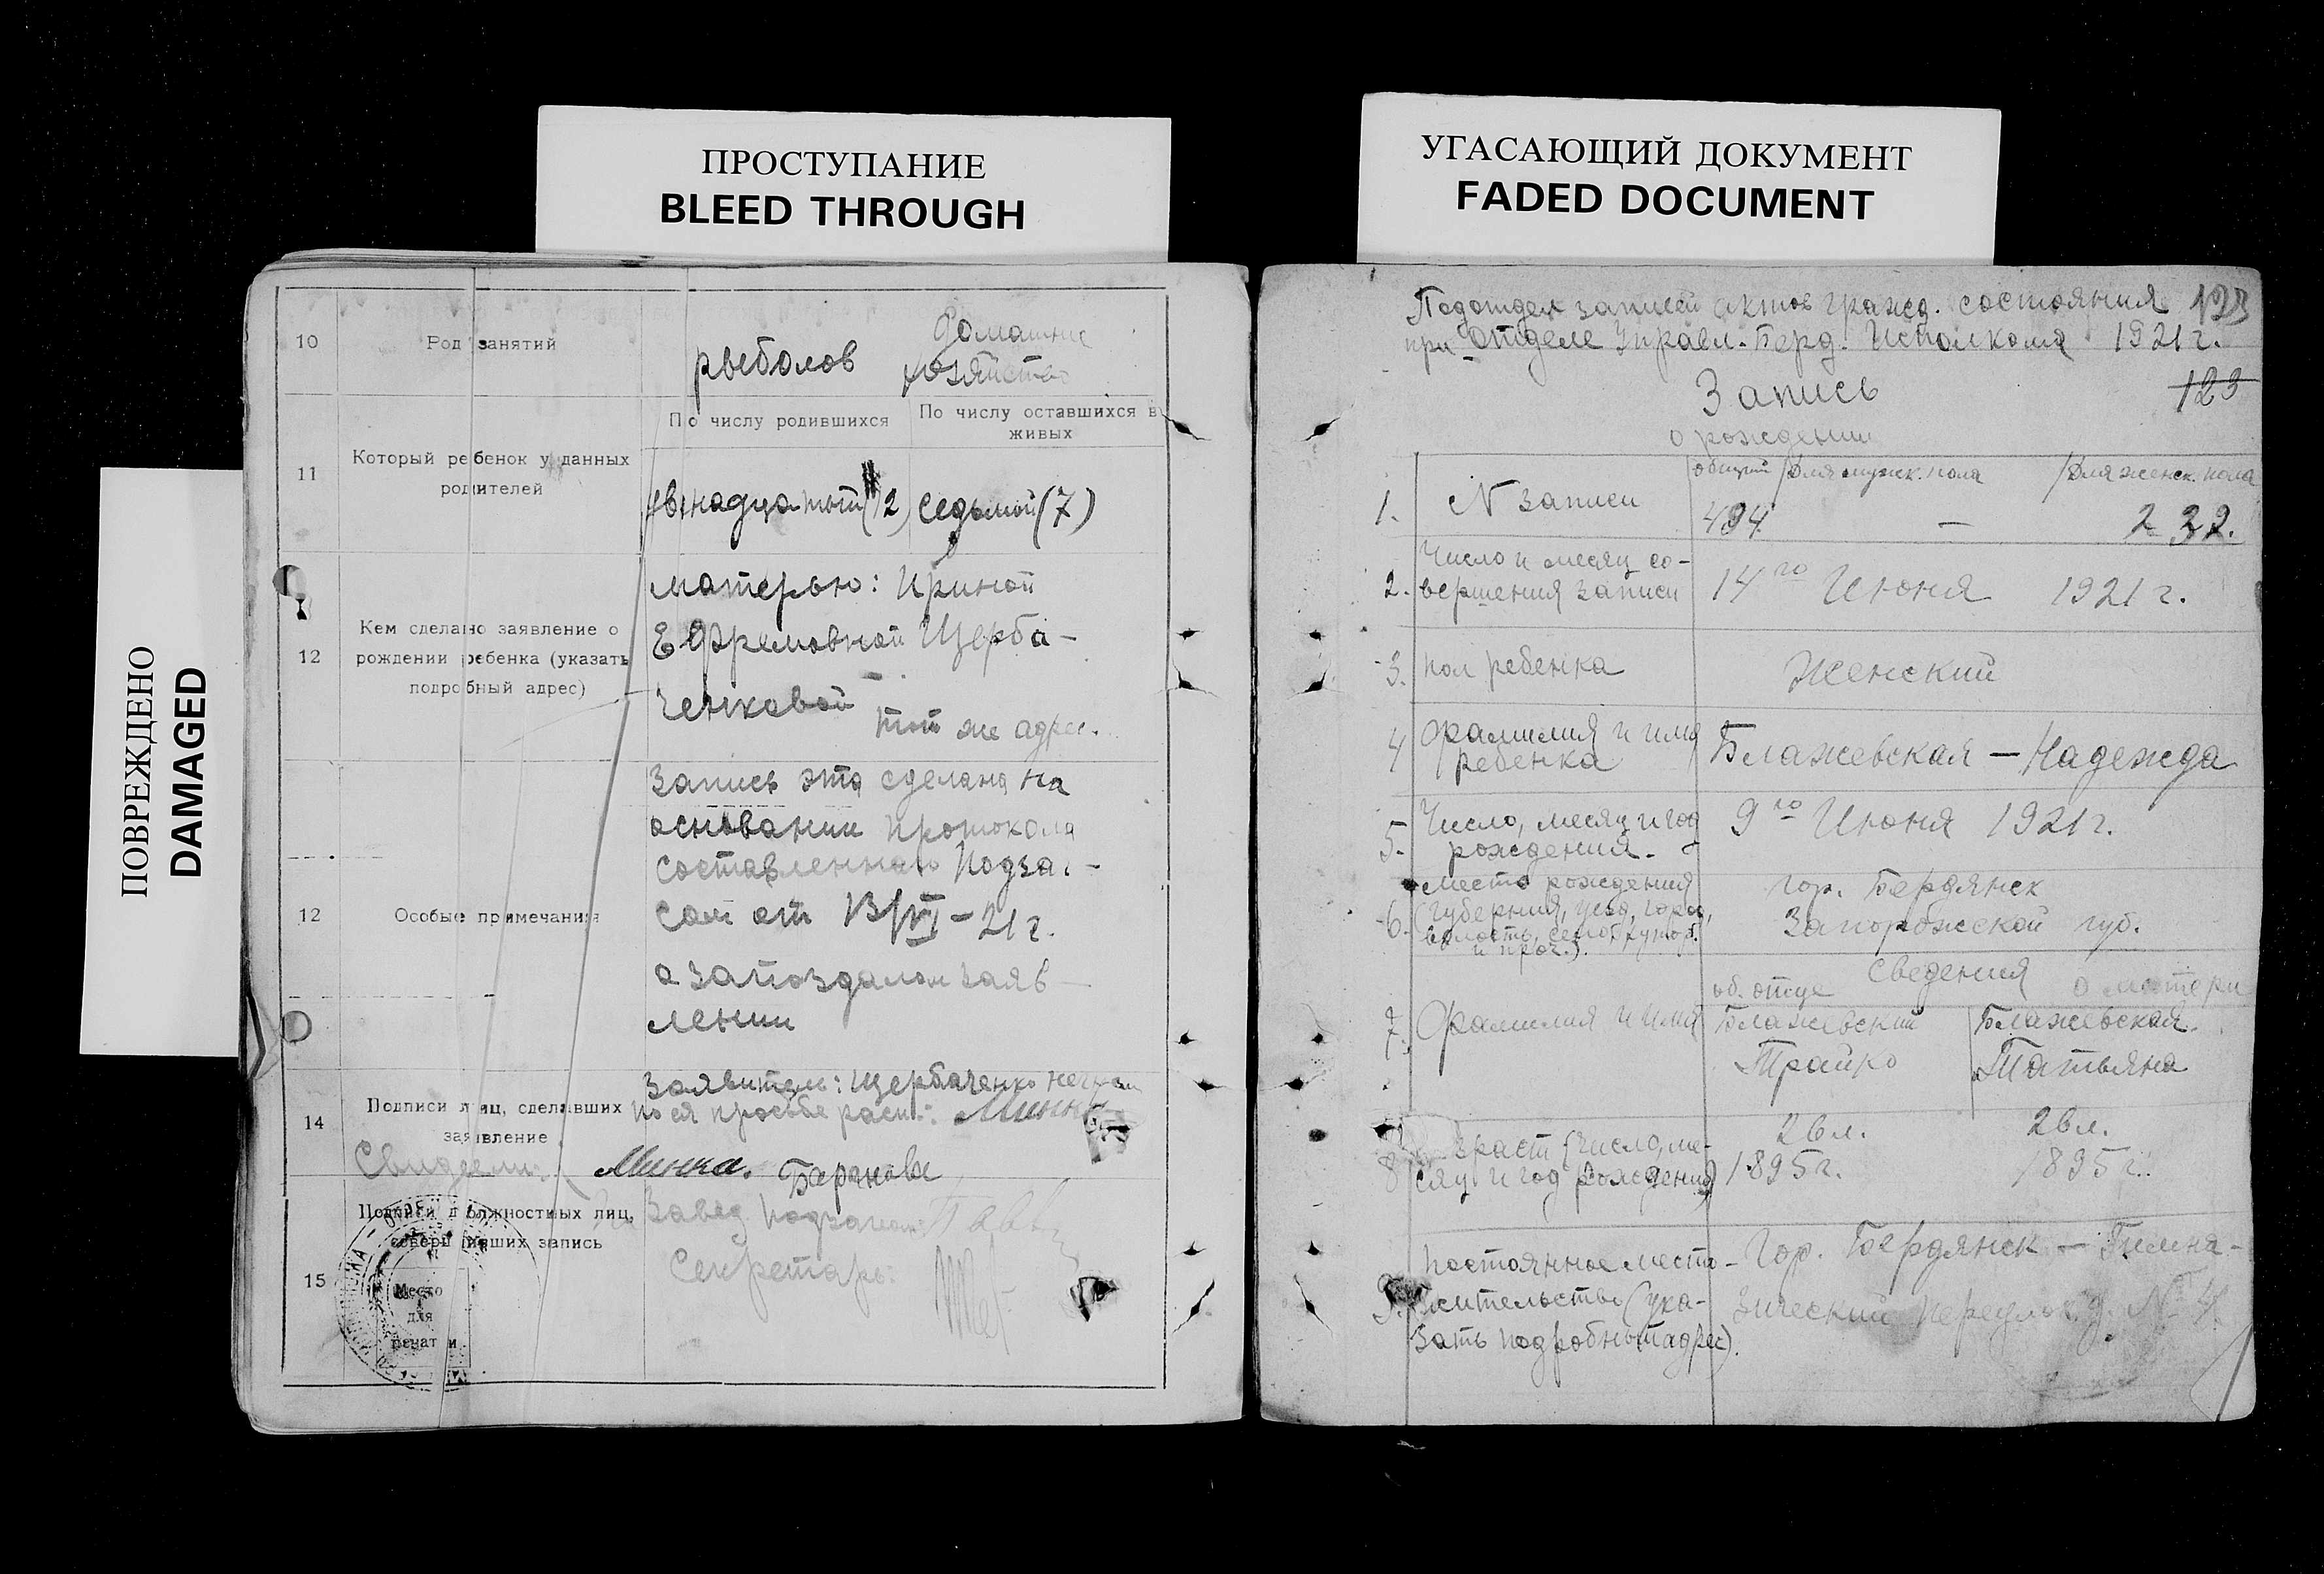 ПРОСТУПАНИЕ
BLEED THROUGH
УГАСАЮЩИЙ ДОКУМЕНТ
FADED DOCUMENT
ПОВРЕЖДЕНО
DAMAGED
10 Род занятий рыболов домашнее хозяйство
По числу родившихся По числу оставшихся в живых
11 Который ребенок у данных родителей двенадцатый (12) седьмой (7)
12 Кем сделано заявление о рождении ребенка (указать подробный адрес)
матерью: Ириной
Ефремовной Щерба-
ченковой
тот же адрес.
12 Особые примечания
Запись эта сделана на
основании протокола
составленнаго Подза.-
сом от 13/VI-21 г.
о запоздалом заяв-
лении
14 Подписи лиц, сделавших заявление
Заявитель: Щербаченко негр
по ея просьбе расп.: Минка
Свидетели: Минка. Баранова
15 Подписи должностных лиц, совершивших запись
Завед. Подзагсом
Секретарь:
Место
для
печати
Подотдел записей актов гражд. состояния 123
при отделе Управл. Берд. Исполкома 1921 г.
Запись 123
о рождении
общий / Для мужск. пола / Для женск. пола
1. N записи 494 — 232.
2. Число и месяц со-
вершения записи 14го Июня 1921 г.
3. пол ребенка Женский
4 Фамилия и имя
ребенка Блажевская — Надежда
5. Число, месяц и год
рождения. 9го Июня 1921 г.
6. место рождения
(губерния, уезд, город,
волость, село, хутор
и проч.).
гор. Бердянск
Запорожской губ.
Сведения
об отце о матери
7. Фамилия и имя Блажевский Блажевская
Трайко Татьяна
8 Возраст (число, ме-
сяц и год рождения)
26 л. 26 л.
1895 г. 1895 г.
9. Постоянное место-
жительство (ука-
зать подробный адрес).
Гор. Бердянск — Гимна-
зический переулок д. № 4